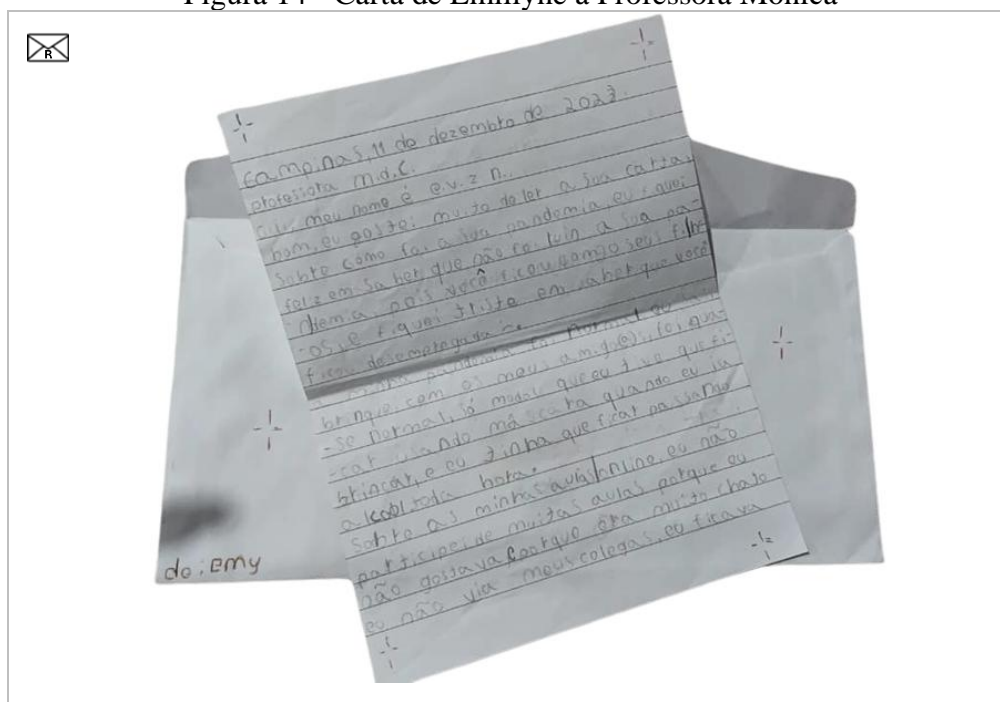 Figura 14 - Carta de Emillyne à Professora Mônica
R
Campinas, 11 de dezembro de 2023.
professora M.d.C.
oi, meu nome é e.v.z n..
bom, eu gostei muito de ler a sua carta,
sobre como foi a sua pandemia eu fiquei
feliz em saber que não foi ruin a sua pa-
ndemia, pois você ficou com seus filh
-os, e fiquei triste em saber que você
ficou desempregada
minha pandemia foi normal eu
brinquei com os meus amigo(e)s, foi qua-
-se normal, só mudou que eu tive que fi-
-car usando máscara quando eu ia
brincar, e eu tinha que ficar passando
alcool toda hora.
sobre as minhas aulas online, eu não
participei de muitas aulas porque eu
não gostava porque era muito chato
eu não via meus colegas, eu ficava
de: Emy